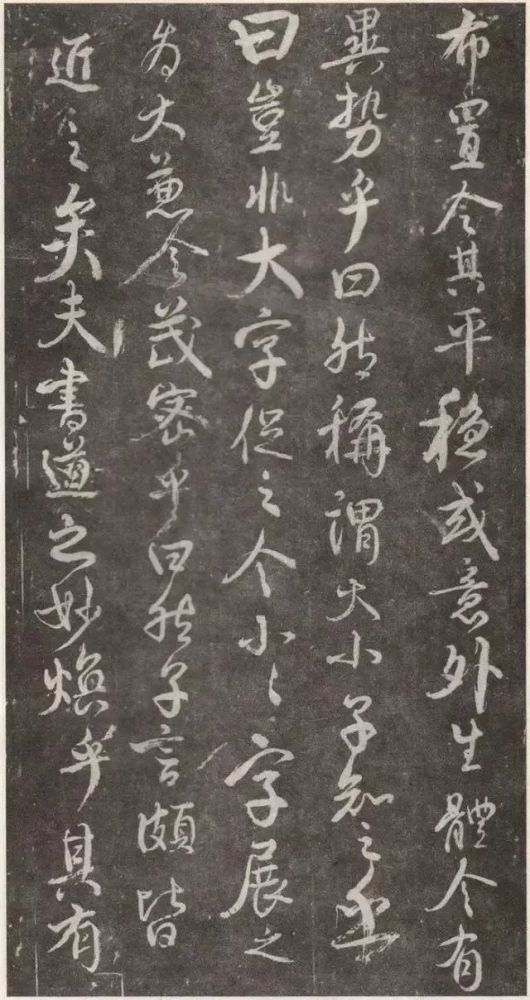 布置令其平穩或意外生體令有
異勢乎曰然稱謂大小子知之乎
曰豈非大字促之令小〻字展之
為大兼令茂密乎曰然子言頗皆
近之矣夫書道之妙煥乎其有